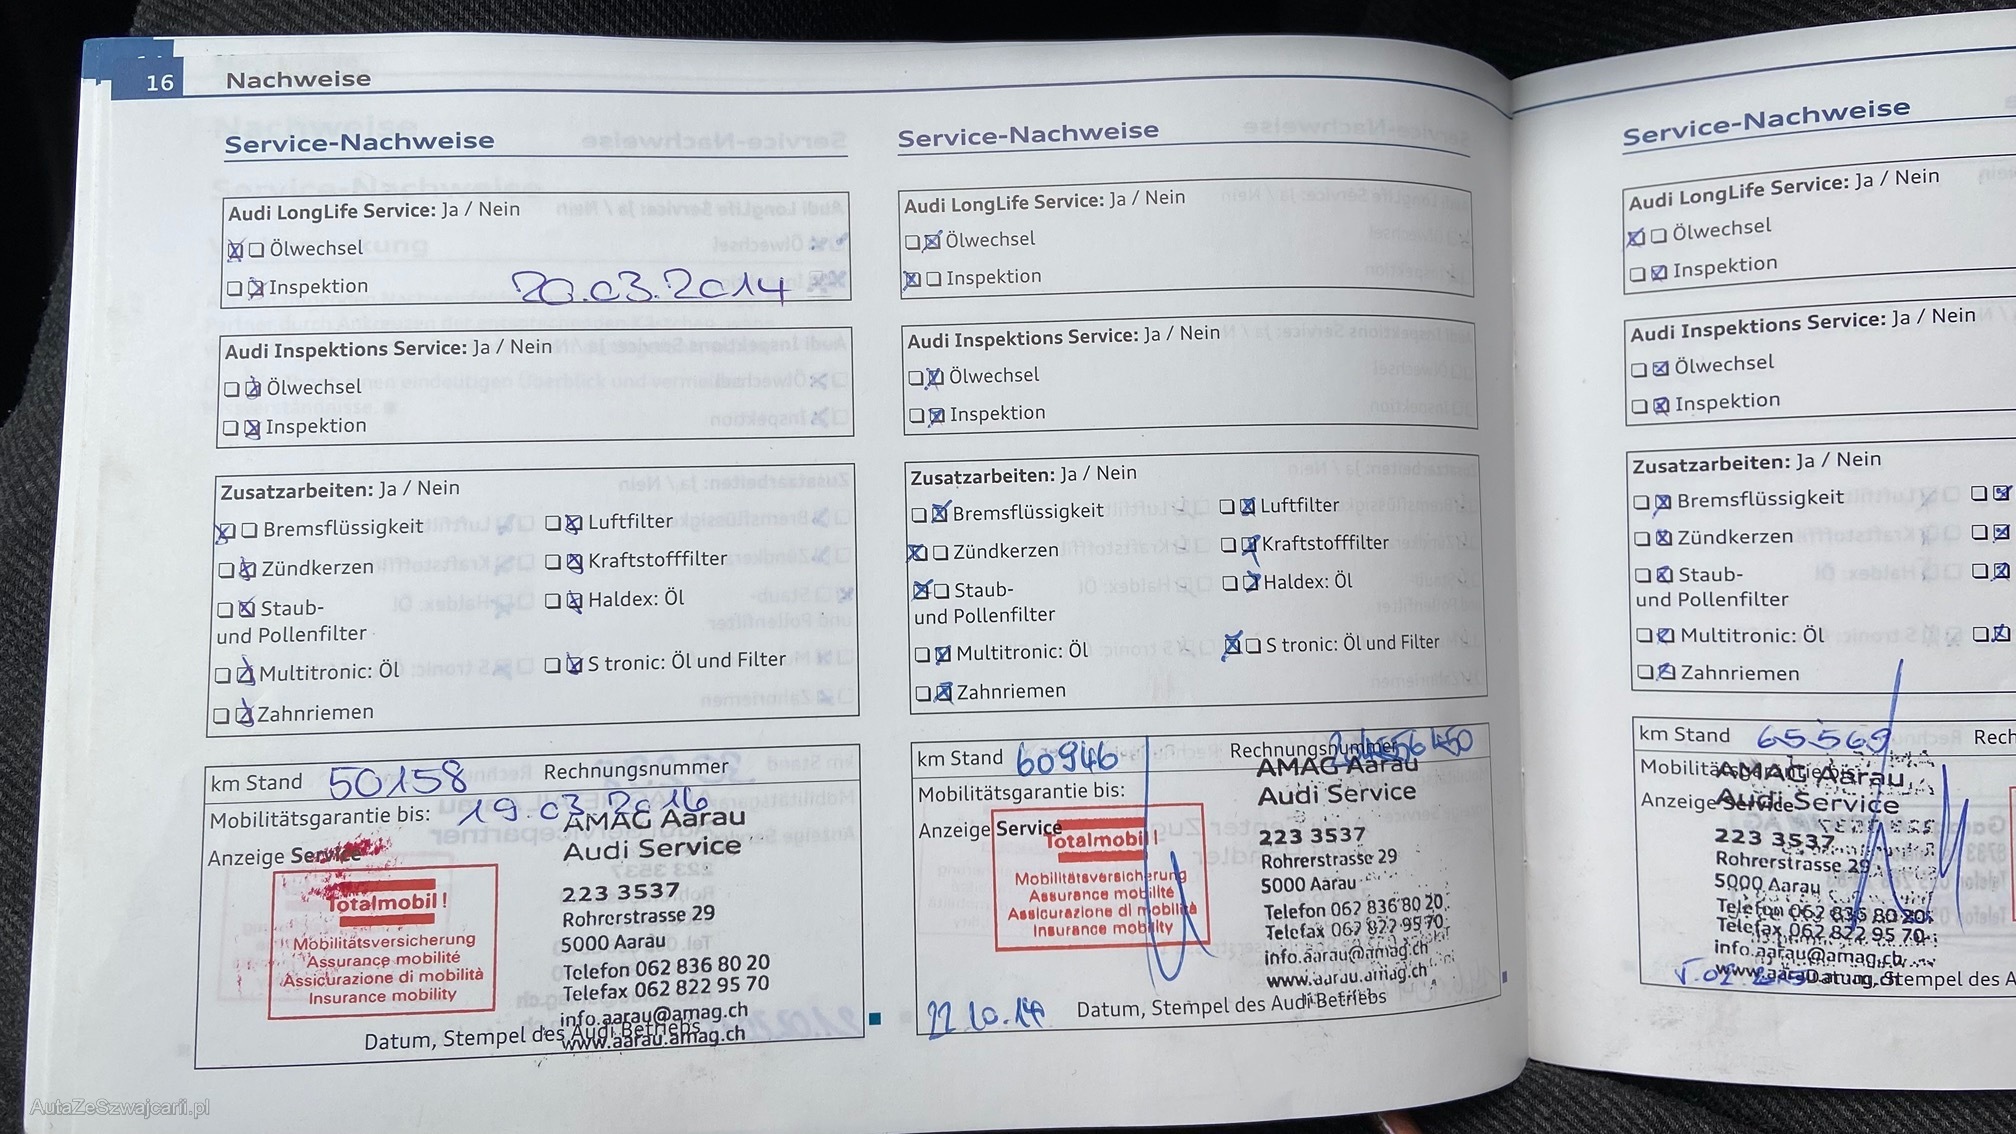 16 Nachweise
Service-Nachweise
Audi LongLife Service: Ja / Nein
Ölwechsel
Inspektion
20.03.2014
Audi Inspektions Service: Ja / Nein
Ölwechsel
Inspektion
Zusatzarbeiten: Ja / Nein
Bremsflüssigkeit
Luftfilter
Zündkerzen
Kraftstofffilter
Staub-
und Pollenfilter
Haldex: Öl
Multitronic: Öl
S tronic: Öl und Filter
Zahnriemen
km Stand 50158
Rechnungsnummer
Mobilitätsgarantie bis: 19.03.2016
Anzeige Service
Totalmobil!
Mobilitätsversicherung
Assurance mobilité
Assicurazione di mobilità
Insurance mobility
AMAG Aarau
Audi Service
223 3537
Rohrerstrasse 29
5000 Aarau
Telefon 062 836 80 20
Telefax 062 822 95 70
info.aarau@amag.ch
www.aarau.amag.ch
Datum, Stempel des Audi Betriebs
Service-Nachweise
Audi LongLife Service: Ja / Nein
Ölwechsel
Inspektion
Audi Inspektions Service: Ja / Nein
Ölwechsel
Inspektion
Zusatzarbeiten: Ja / Nein
Bremsflüssigkeit
Luftfilter
Zündkerzen
Kraftstofffilter
Staub-
und Pollenfilter
Haldex: Öl
Multitronic: Öl
S tronic: Öl und Filter
Zahnriemen
km Stand 60946
Rechnungsnummer
Mobilitätsgarantie bis:
Anzeige Service
Totalmobil!
Mobilitätsversicherung
Assurance mobilité
Assicurazione di mobilità
Insurance mobility
AMAG Aarau
Audi Service
223 3537
Rohrerstrasse 29
5000 Aarau
Telefon 062 836 80 20
Telefax 062 822 95 70
info.aarau@amag.ch
www.aarau.amag.ch
22.10.14
Datum, Stempel des Audi Betriebs
Service-Nachweise
Audi LongLife Service: Ja / Nein
Ölwechsel
Inspektion
Audi Inspektions Service: Ja / Nein
Ölwechsel
Inspektion
Zusatzarbeiten: Ja / Nein
Bremsflüssigkeit
Zündkerzen
Staub-
und Pollenfilter
Multitronic: Öl
Zahnriemen
km Stand 65569
Rech
Mobilitätsgarantie bis:
Anzeige Service
AMAG Aarau
Audi Service
223 3537
Rohrerstrasse 29
5000 Aarau
Telefon 062 836 80 20
Telefax 062 822 95 70
info.aarau@amag.ch
www.aarau.amag.ch
Datum, Stempel des A
AutaZeSzwajcarii.pl